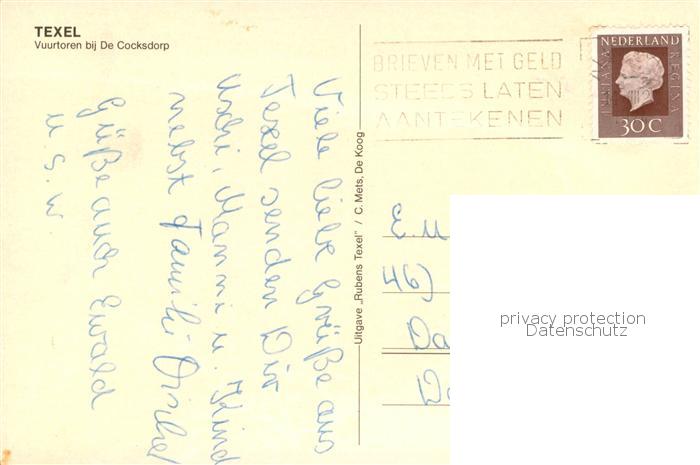 TEXEL
Vuurtoren bij De Cocksdorp
BRIEVEN MET GELD
STEEDS LATEN
AANTEKENEN
NEDERLAND
JULIANA REGINA
30 C
Viele liebe Grüße aus
Texel senden Dir
Manni u. Kind
nebst Familie
Grüße auch Ewald
u. s. w
Uitgave „Rubens Texel" / C. Mets, De Koog
E. U
46)
Da
privacy protection
Datenschutz